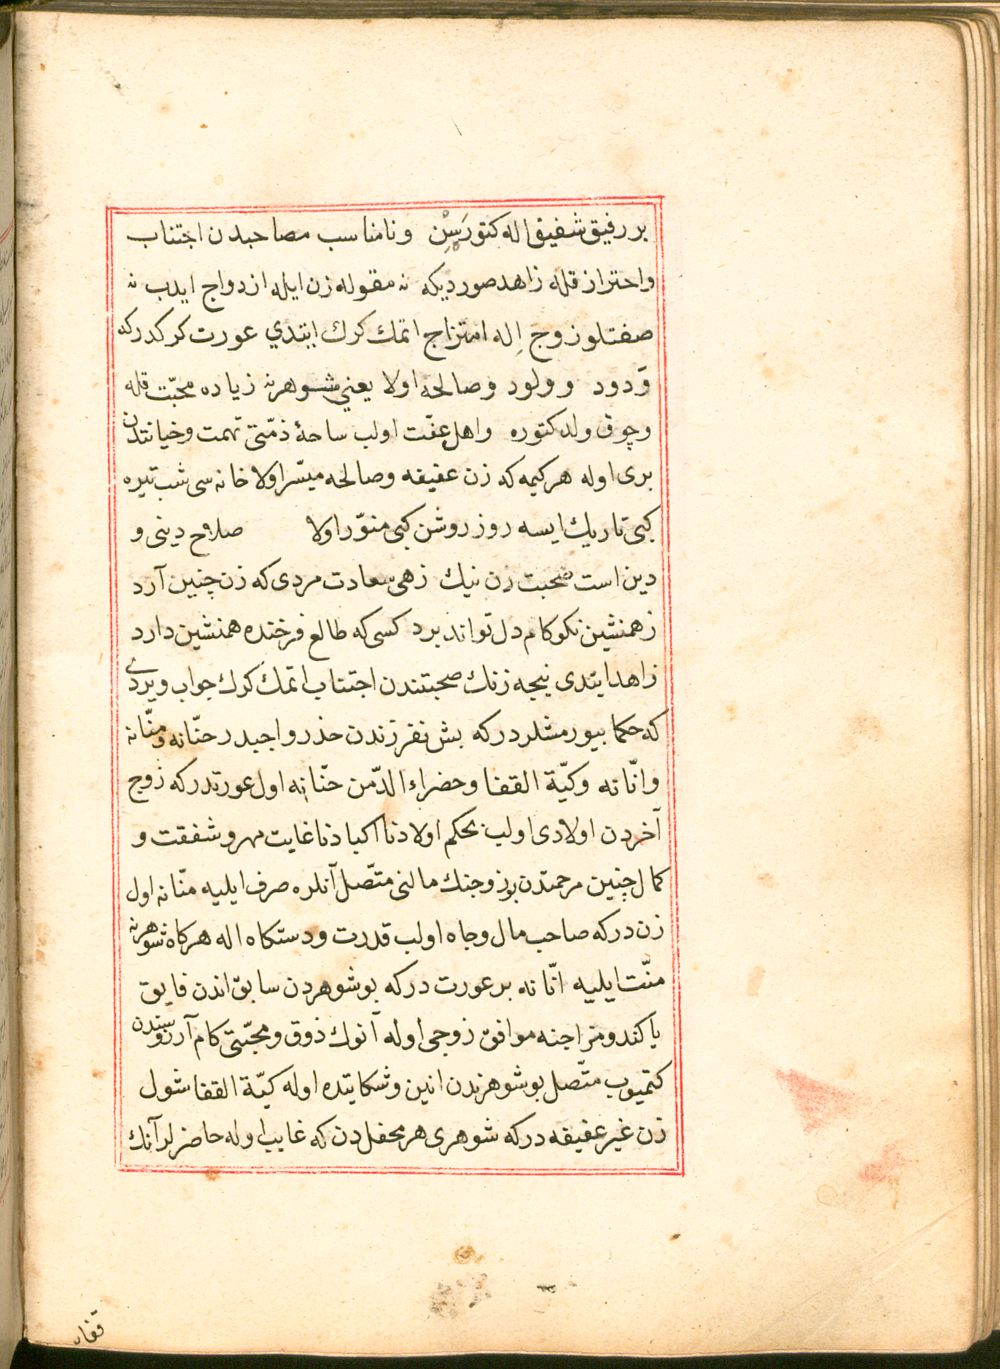 بر رفيق شفيق اله كتورَسِنْ ونامناسب مصاحبدن اجتناب
واحتراز قله زاهد صورديكه نه مقوله زن ايله ازدواج ايدب نه
صفتلو زوج اِله امتزاج اتمك كرك ايتدي عورت كركدركه
وَدود وولود وصالحه اولا يعني شوهرنه زياده محبّت قله
وچوق ولد كتوره واهل عفّت اولب ساحۀ ذمّتى تهمت وخيانتدن
برى اوله هر كيمه كه زن عفيفه وصالحه ميسّر اولا خانه سى شب تيره
كبى تاريك ايسه روز روشن كبى منوّر اولا صلاح دينى و
دين است صحبت زن نيك زهى سعادت مردى كه زن چنين آرد
زهمنشين نكو كام دل تواند برد كسى كه طالع فرخنده همنشين دارد
زاهد ايتدى نيجه زنك صحبتندن اجتناب اتمك كرك جواب ويردى
كه حكما بيورمشلردركه بش نفر زندن حذر واجبدر حنّانه ومنّانه
وانّانه وكيّة القفا وحضراء الدّمن حنّانه اول عورتدركه زوج
آخردن اولادى اولب بحكم اولادنا اكبادنا غايت مهر وشفقت و
كمال چنين مرحمتدن بو زوجنك مالنى متّصل آنلره صرف ايليه منّانه اول
زن دركه صاحب مال وجاه اولب قدرت ودستكاه اله هركاه شوهرنه
منّت ايليه انّانه بر عورت دركه بو شوهردن سابق اندن فايق
يا كندو مزاجنه موافق زوجى اوله آنوك ذوق ومحبّتى كام آرزوسندن
كتميوب متّصل بو شوهرندن انين وشكايتده اوله كيّة القفا شول
زن غير عفيفه دركه شوهرى هر محفلدن كه غايب اوله حاضرلر آنك
قفاسـ